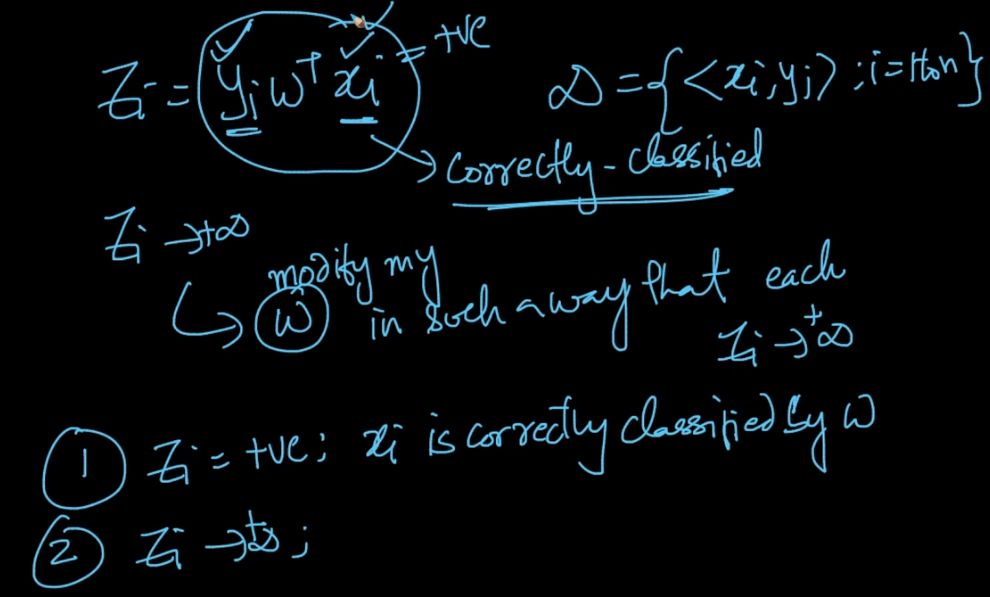 Zi = yi wᵀ xi = +ve
D = {<xi, yi> ; i=1 to n}
→ correctly-classified
Zi → +∞
modify my
→ w in such a way that each
Zi → +∞
1 Zi = +ve; xi is correctly classified by w
2 Zi → +∞ ;